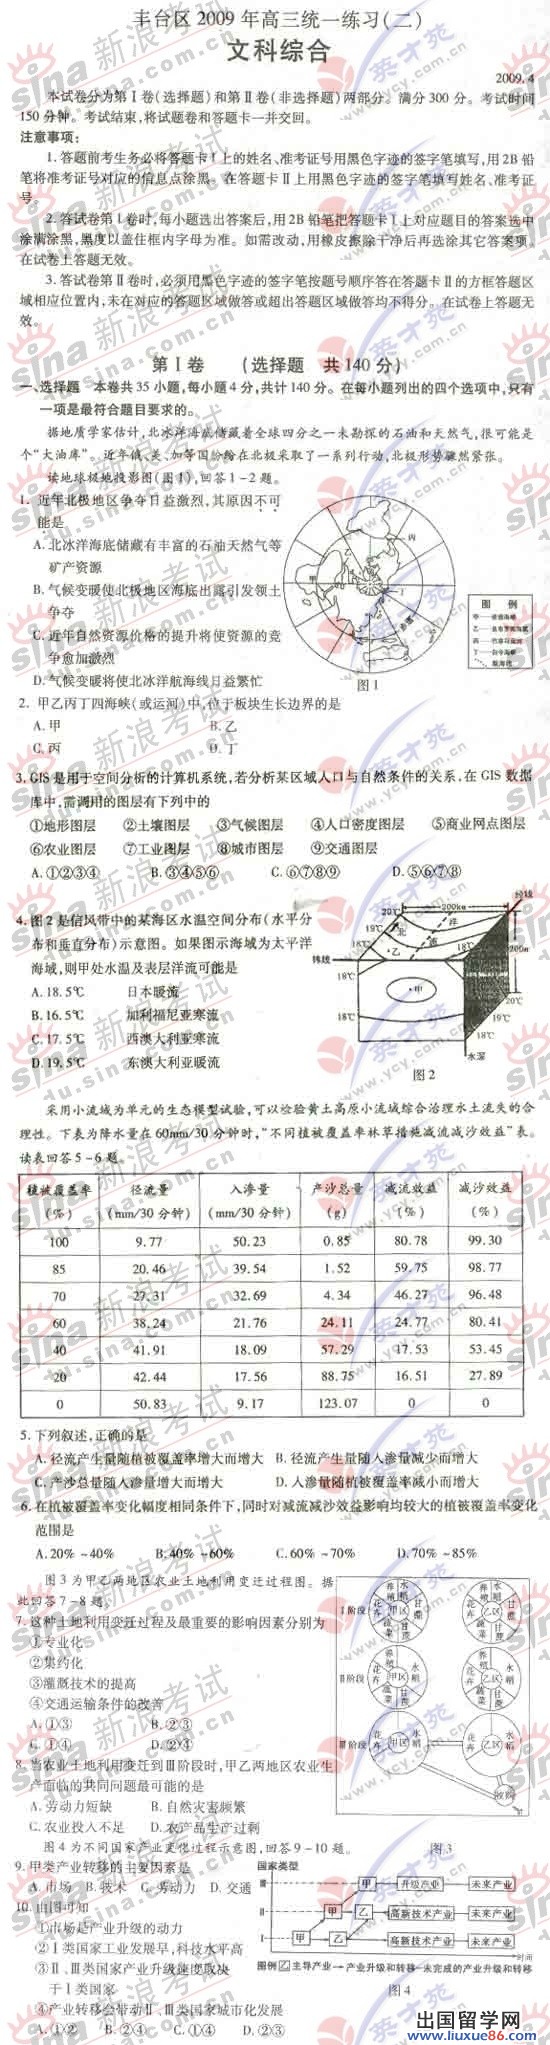 丰台区 2009 年高三统一练习(二)
文科综合
2009.4
本试卷分为第Ⅰ卷(选择题)和第Ⅱ卷(非选择题)两部分。满分 300 分。考试时间
150 分钟。考试结束,将试题卷和答题卡一并交回。
注意事项:
1. 答题前考生务必将答题卡Ⅰ上的姓名、准考证号用黑色字迹的签字笔填写,用 2B 铅
笔将准考证号对应的信息点涂黑。在答题卡Ⅱ上用黑色字迹的签字笔填写姓名、准考证
号。
2. 答试卷第Ⅰ卷时,每小题选出答案后,用 2B 铅笔把答题卡Ⅰ上对应题目的答案选中
涂满涂黑,黑度以盖住框内字母为准。如需改动,用橡皮擦除干净后再选涂其它答案项。
在试卷上答题无效。
3. 答试卷第Ⅱ卷时,必须用黑色字迹的签字笔按题号顺序答在答题卡Ⅱ的方框答题区
域相应位置内,未在对应的答题区域做答或超出答题区域做答均不得分。在试卷上答题无
效。
第Ⅰ卷 (选择题 共 140 分)
一、选择题 本卷共 35 小题,每小题 4 分,共计 140 分。在每小题列出的四个选项中,只有
一项是最符合题目要求的。
据地质学家估计,北冰洋海底储藏着全球四分之一未勘探的石油和天然气,很可能是
个“大油库”。近年俄、美、加等国纷纷在北极采取了一系列行动,北极形势骤然紧张。
读地球极地投影图(图1),回答 1~2 题。
1. 近年北极地区争夺日益激烈,其原因不可
能是
A. 北冰洋海底储藏有丰富的石油天然气等
矿产资源
B. 气候变暖使北极地区海底出露引发领土
争夺
C. 近年自然资源价格的提升将使资源的竞
争愈加激烈
D. 气候变暖将使北冰洋航海线日益繁忙
甲
乙
丙
丁
图 例
图 1
2. 甲乙丙丁四海峡(或运河)中,位于板块生长边界的是
A. 甲 B. 乙
C. 丙 D. 丁
3. GIS 是用于空间分析的计算机系统,若分析某区域人口与自然条件的关系,在 GIS 数据
库中,需调用的图层有下列中的
①地形图层 ②土壤图层 ③气候图层 ④人口密度图层 ⑤商业网点图层
⑥农业图层 ⑦工业图层 ⑧城市图层 ⑨交通图层
A. ①②③④ B. ③④⑤⑥ C. ⑥⑦⑧⑨ D. ⑤⑥⑦⑧
4. 图 2 是信风带中的某海区水温空间分布(水平分
布和垂直分布)示意图。如果图示海域为太平洋
海域,则甲处水温及表层洋流可能是
A. 18.5℃ 日本暖流
B. 16.5℃ 加利福尼亚寒流
C. 17.5℃ 西澳大利亚寒流
D. 19.5℃ 东澳大利亚暖流
20℃ 200km 经线
19℃ 北 洋
18℃ 乙 流 18℃ 200m
纬线
18℃ 甲
18℃
20℃
19℃
18℃
水深
图 2
采用小流域为单元的生态模型试验,可以检验黄土高原小流域综合治理水土流失的合
理性。下表为降水量在 60mm/30 分钟时,“不同植被覆盖率林草措施减流减沙效益”表。
读表回答 5~6 题。
植被覆盖率 径流量 入渗量 产沙总量 减流效益 减沙效益
(%) (mm/30 分钟) (mm/30 分钟) (g) (%) (%)
100 9.77 50.23 0.85 80.78 99.30
85 20.46 39.54 1.52 59.75 98.77
70 27.31 32.69 4.34 46.27 96.48
60 38.24 21.76 24.11 24.77 80.41
40 41.91 18.09 57.29 17.53 53.45
20 42.44 17.56 88.75 16.51 27.89
0 50.83 9.17 123.07 0 0
5. 下列叙述,正确的是
A. 径流产生量随植被覆盖率增大而增大 B. 径流产生量随入渗量减少而增大
C. 产沙总量随入渗量增大而增大 D. 入渗量随植被覆盖率减小而增大
6. 在植被覆盖率变化幅度相同条件下,同时对减流减沙效益影响均较大的植被覆盖率变化
范围是
A. 20% ~40% B. 40% ~60% C. 60% ~70% D. 70% ~85%
图 3 为甲乙两地区农业土地利用变迁过程图。据
此回答 7~8 题。
7. 这种土地利用变迁过程及最重要的影响因素分别为
①专业化
②集约化
③灌溉技术的提高
④交通运输条件的改善
A. ①③ B. ②③
C. ①④ D. ②④
8. 当农业土地利用变迁到Ⅲ阶段时,甲乙两地区农业生
产面临的共同问题最可能的是
A. 劳动力短缺 B. 自然灾害频繁
C. 农业投入不足 D. 农产品生产过剩
Ⅰ阶段 花卉 养殖 水稻 甘蔗 蔬菜 甲区 花卉 养殖 水稻 甘蔗 蔬菜 乙区
Ⅱ阶段 花卉 养殖 水稻 甘蔗 蔬菜 甲区 花卉 养殖 水稻 甘蔗 蔬菜 乙区
Ⅲ阶段 花卉 甲区 水稻 花卉 乙区 水稻
图 3
图 4 为不同国家产业变化过程示意图,回答 9~10 题。
9. 甲类产业转移的主要因素是
A. 市场 B. 技术 C. 劳动力 D. 交通
10. 由图可知
①市场是产业升级的动力
②Ⅰ类国家工业发展早,科技水平高
③Ⅱ、Ⅲ类国家产业升级速度取决
于Ⅰ类国家
④产业转移会带动Ⅱ、Ⅲ类国家城市化发展
A. ①② B. ②④ C. ①④ D. ②③
国家类型
Ⅲ 甲 升级产业 未来产业
Ⅱ 甲 乙 高新技术产业 未来产业
Ⅰ 甲 乙 高新技术产业 未来产业
时间
图例 乙 主导产业 产业升级和转移 未完成的产业升级和转移
图 4
sina 新浪考试
edu.sina.com.cn
英才苑
www.ycy.com.cn
出国留学网
www.liuxue86.com